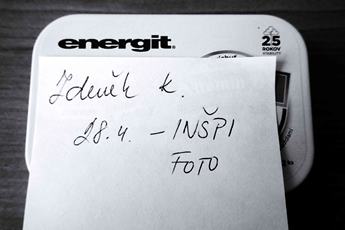 energit®
25
ROKOV
Zdeněk K.
28.4. – INŠPI
FOTO